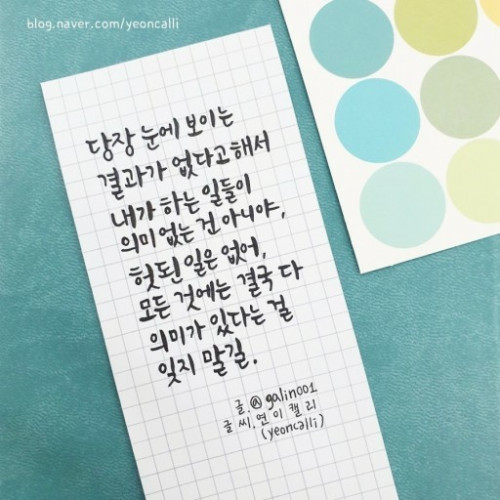 blog.naver.com/yeoncalli
당장 눈에 보이는
결과가 없다고해서
내가 하는 일들이
의미 없는 건 아니야,
헛된 일은 없어,
모든 것에는 결국 다
의미가 있다는 걸
잊지 말길.
글.@galin001
글씨.연이캘리
(yeoncalli)